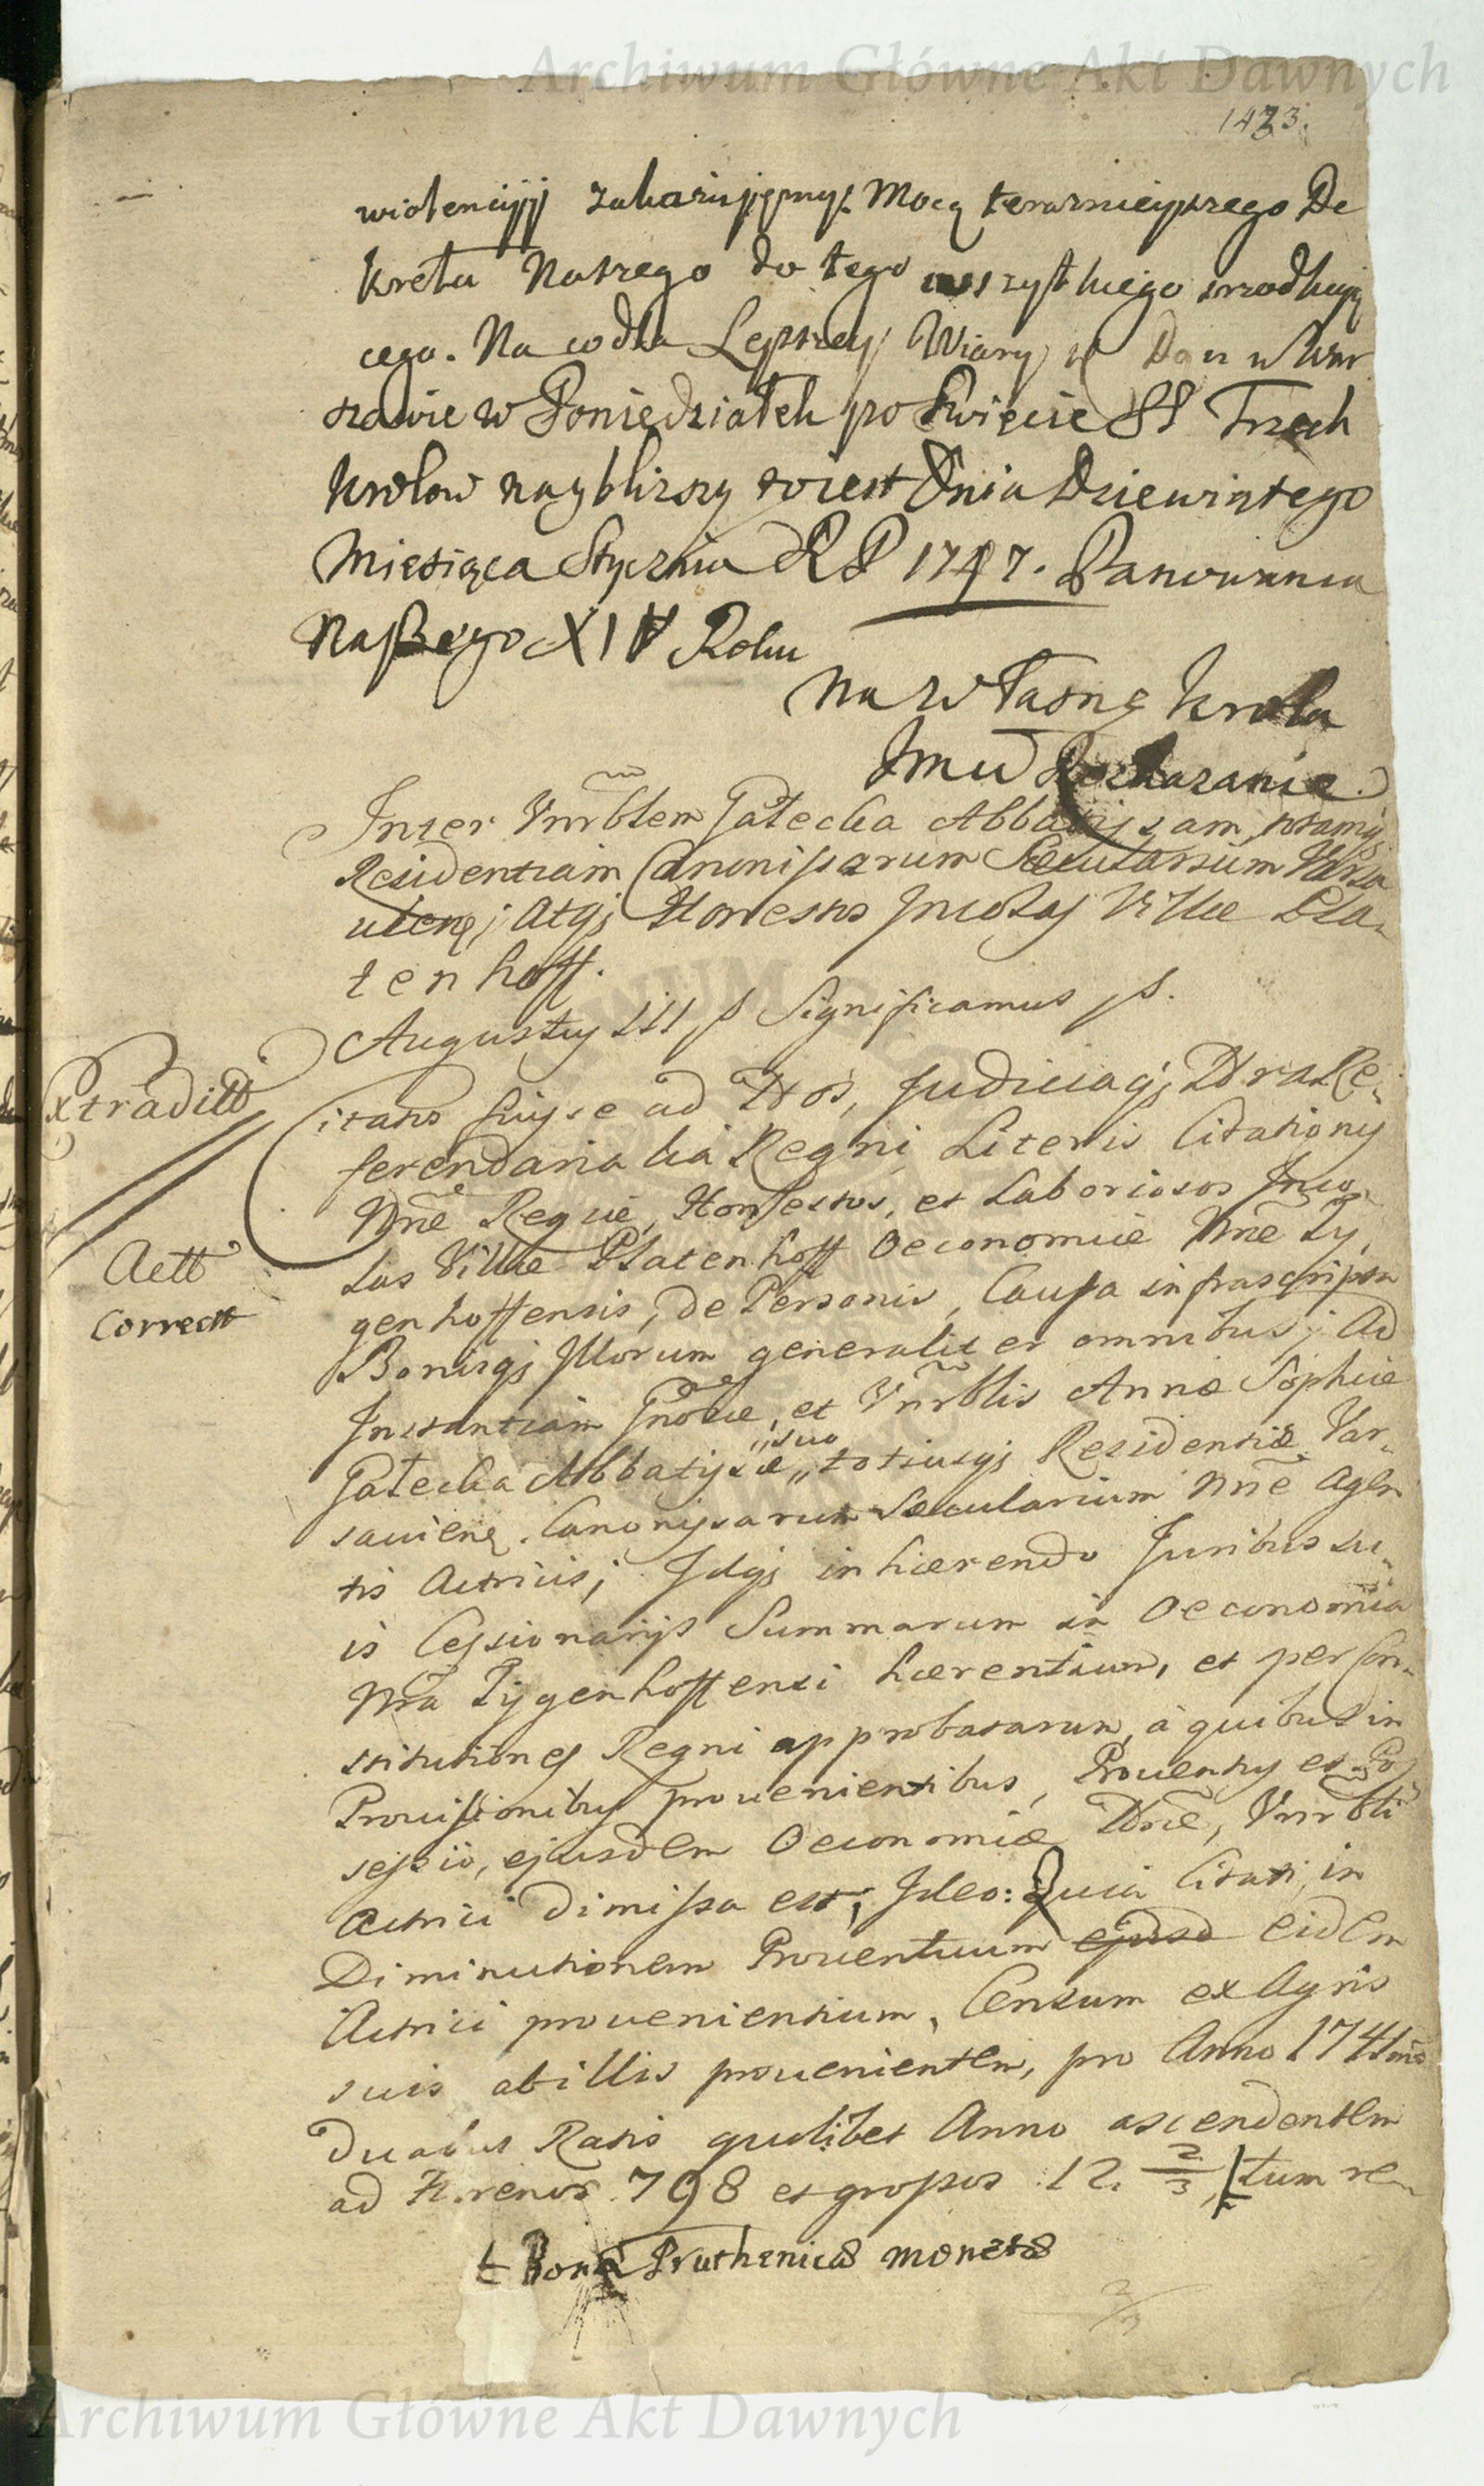 Archiwum Główne Akt Dawnych
1423.
wiolencyji zakazującmyś Mocą teraznieyszego De
kretu Naszego do tego wszytkiego srzodkują
cego. Na co dla Lepszey Wiary w Dan w War
szawie w Poniedziałek po Swięcie SS Trzech
Krolow nayblizszy to iest Dnia Dziewiątego
Miesiąca Stycznia RP 1747. Panowania
Naszego XIV Roku
Na Własne Krola
Jmci Rozkazanie
Inter Vnrblem Gałecka Abbatissam, totamq
Residentiam Canonissarum Sæcularium Varsa
uienę; atqj Honestos Incolas Villæ Pla-
tenhoff.
Augustus III p Significamus p.
Extraditt
Citatos fuisse ad Nos, Judiciaqj Nra Re-
ferendarialia Regni Literis Citationis
Nræ Regiæ, Honestos, et Laboriosos Inco-
Actt
las Villæ Platenhoff Oeconomiæ Nræ Ty-
Correctt
genhoffensis, de Personis, Causa infrascripta
Bonisqj Illorum generaliter omnibus; Ad
Instantiam Gnosæ, et Vnrblis Annæ Sophiæ
suo
Gałecka Abbatissæ totiusqj Residentiæ Var-
sauienę. Canonissarum Sæcularium Nræ Agen
tis Actricis; Idqj inhærendo Juribus su-
is Cessionarijs Summarum in Oeconomia
Nra Tygenhoffensi hærentium, et per Con-
stitutiones Regni approbatarum, à quibus in
Prouisionibus prouenientibus, Prouentus et Po
sessio, ejusdem Oeconomiæ Nræ, Vnrbli
Actrici dimissa est; Ideo: Quia Citati, in
Diminutionem Prouentuum ejusd eidem
Actrici prouenientium, Censum ex Agris
suis ab illis prouenientem, pro Anno 1741mo
duabus Ratis quolibet Anno ascendentem
ad florenos 798 et grossos 12. 2/3, tum re-
Bonæ Pruthenicæ monetæ
2/3
Archiwum Główne Akt Dawnych